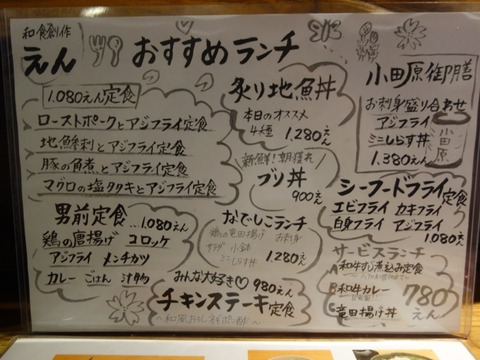 和食創作
えん
おすすめランチ
1.080えん定食
ローストポークとアジフライ定食
地魚刺とアジフライ定食
豚の角煮とアジフライ定食
マグロの塩タタキとアジフライ定食
炙り地魚丼
本日のオススメ
4種 1.280えん
新鮮!朝獲れ
ブリ丼
900えん
小田原御膳
お刺身盛り合わせ
アジフライ
ミニしらす丼
1.380えん
小田原
男前定食…1.080えん
鶏の唐揚げ コロッケ
アジフライ メンチカツ
カレー ごはん 汁物
なでしこランチ
鶏の竜田揚げ お刺身
サラダ 小鉢
ミニしらす丼
1280えん
シーフードフライ定食
エビフライ カキフライ
白身フライ アジフライ
1.080えん
みんな大好き♡ 980えん
チキンステーキ定食
〜和風おろし ポン酢〜
サービスランチ
A 和牛すじ煮込み定食
B 和牛カレー
C 竜田揚げ丼
780えん